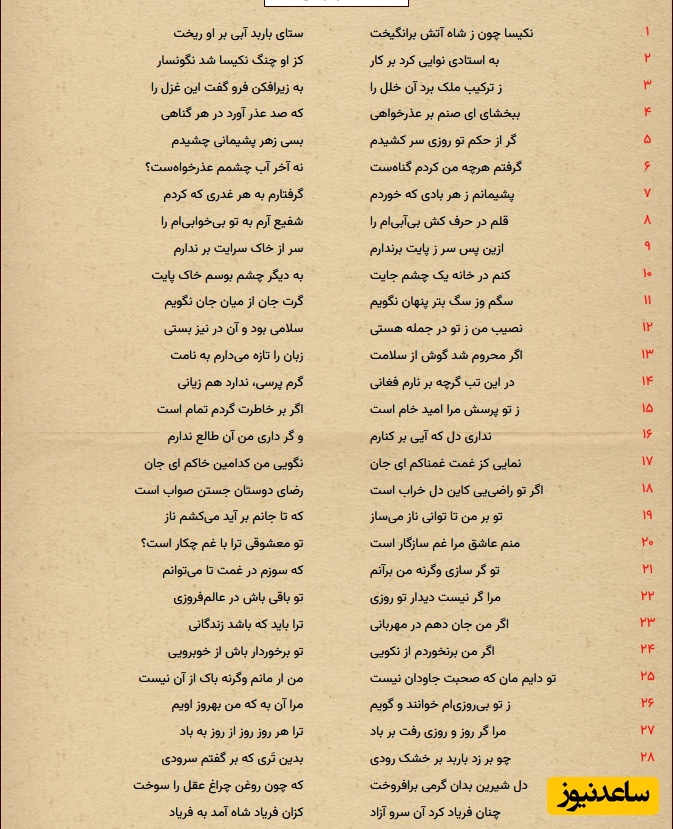 ۱ نکیسا چون ز شاه آتش برانگیخت ستای باربد آبی بر او ریخت
۲ به استادی نوایی کرد بر کار کز او چنگ نکیسا شد نگونسار
۳ ز ترکیب ملک برد آن خلل را به زیرافکن فرو گفت این غزل را
۴ ببخشای ای صنم بر عذرخواهی که صد عذر آورد در هر گناهی
۵ گر از حکم تو روزی سر کشیدم بسی زهر پشیمانی چشیدم
۶ گرفتم هرچه من کردم گناه‌ست نه آخر آب چشمم عذرخواه‌ست؟
۷ پشیمانم ز هر بادی که خوردم گرفتارم به هر غدری که کردم
۸ قلم در حرف کش بی‌آبی‌ام را شفیع آرم به تو بی‌خوابی‌ام را
۹ ازین پس سر ز پایت برندارم سر از خاک سرایت بر ندارم
۱۰ کنم در خانه یک چشم جایت به دیگر چشم بوسم خاک پایت
۱۱ سگم وز سگ بتر پنهان نگویم گرت جان از میان جان نگویم
۱۲ نصیب من ز تو در جمله هستی سلامی بود و آن در نیز بستی
۱۳ اگر محروم شد گوش از سلامت زبان را تازه می‌دارم به نامت
۱۴ در این تب گرچه بر نارم فغانی گرم پرسی، ندارد هم زیانی
۱۵ ز تو پرسش مرا امید خام است اگر بر خاطرت گردم تمام است
۱۶ نداری دل که آیی بر کنارم و گر داری من آن طالع ندارم
۱۷ نمایی کز غمت غمناکم ای جان نگویی من کدامین خاکم ای جان
۱۸ اگر تو راضی‌یی کاین دل خراب است رضای دوستان جستن صواب است
۱۹ تو بر من تا توانی ناز می‌ساز که تا جانم بر آید می‌کشم ناز
۲۰ منم عاشق مرا غم سازگار است تو معشوقی ترا با غم چکار است؟
۲۱ تو گر سازی وگرنه من برآنم که سوزم در غمت تا می‌توانم
۲۲ مرا گر نیست دیدار تو روزی تو باقی باش در عالم‌فروزی
۲۳ اگر من جان دهم در مهربانی ترا باید که باشد زندگانی
۲۴ اگر من برنخوردم از نکویی تو برخوردار باش از خوبرویی
۲۵ تو دایم مان که صحبت جاودان نیست من ار مانم وگرنه باک از آن نیست
۲۶ ز تو بی‌روزی‌ام خوانند و گویم مرا آن به که من بهروز اویم
۲۷ مرا گر روز و روزی رفت بر باد ترا هر روز روز از روز به باد
۲۸ چو بر زد باربد بر خشک رودی بدین تَری که بر گفتم سرودی
دل شیرین بدان گرمی برافروخت که چون روغن چراغ عقل را سوخت
چنان فریاد کرد آن سرو آزاد کزان فریاد شاه آمد به فریاد
ساعدنیوز